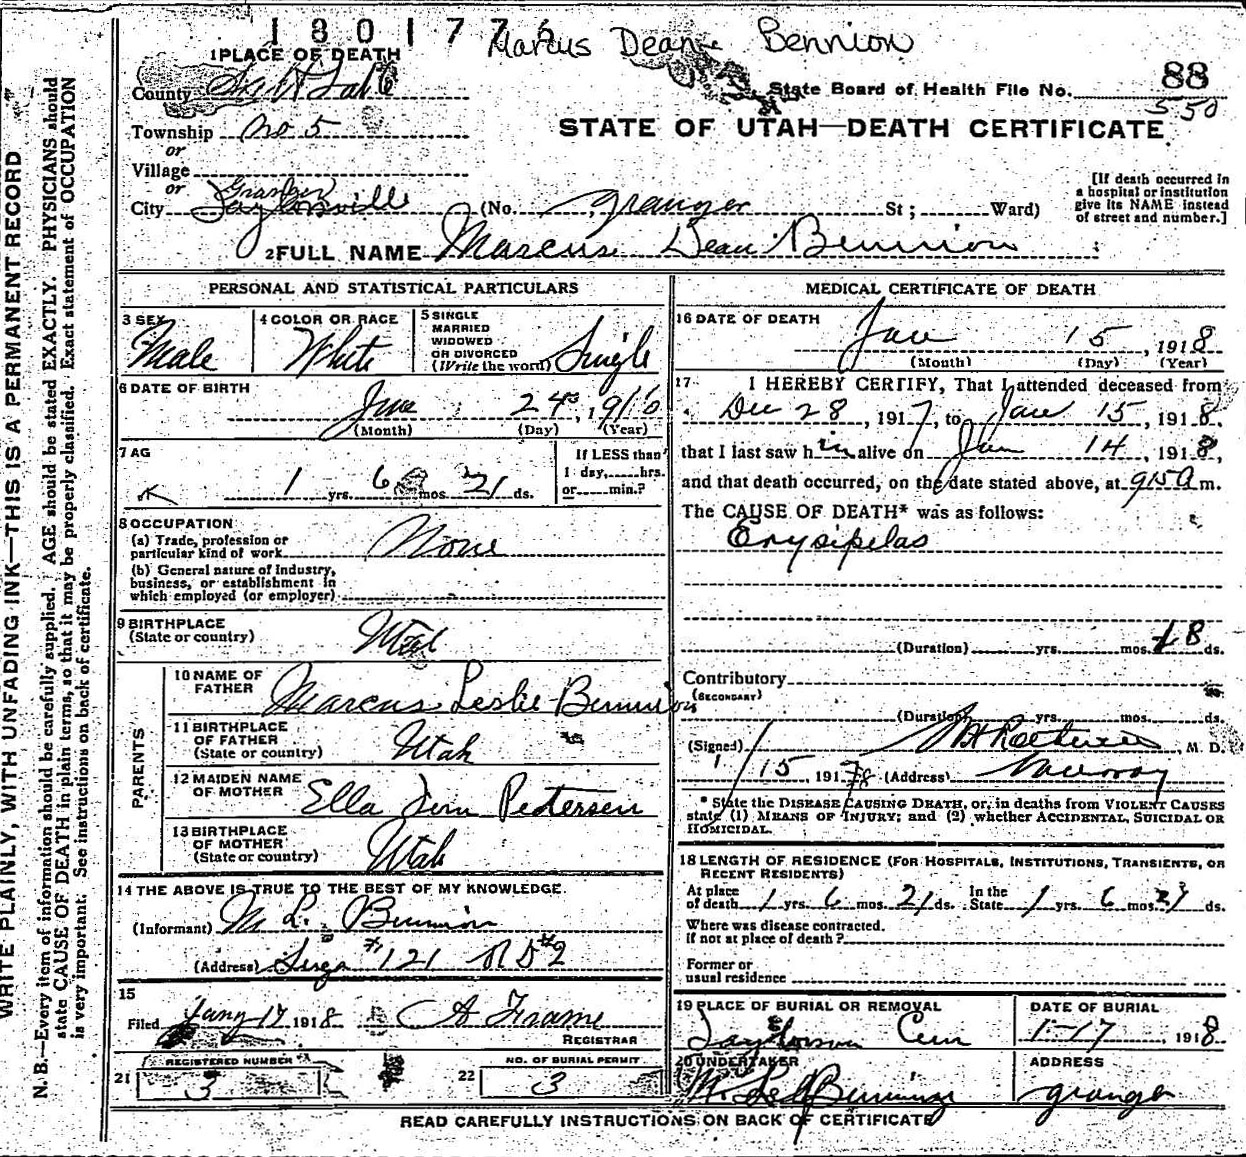 180177
Marcus Deane Bennion
1 PLACE OF DEATH
County Salt Lake
State Board of Health File No. 88
550
Township No 5
STATE OF UTAH—DEATH CERTIFICATE
or
Village
or
Granger
City Taylorsville (No. Granger St; Ward)
[If death occurred in a hospital or institution give its NAME instead of street and number.]
2 FULL NAME Marcus Dean Bennion
PERSONAL AND STATISTICAL PARTICULARS
3 SEX Male
4 COLOR OR RACE White
5 SINGLE MARRIED WIDOWED OR DIVORCED (Write the word) Single
6 DATE OF BIRTH
June 24, 1916
(Month) (Day) (Year)
7 AG
1 yrs. 6 mos. 21 ds.
If LESS than 1 day, hrs. or min.?
8 OCCUPATION
(a) Trade, profession or particular kind of work None
(b) General nature of Industry, business, or establishment in which employed (or employer)
9 BIRTHPLACE (State or country) Utah
PARENTS
10 NAME OF FATHER Marcus Leslie Bennion
11 BIRTHPLACE OF FATHER (State or country) Utah
12 MAIDEN NAME OF MOTHER Ella Pedersen
13 BIRTHPLACE OF MOTHER (State or country) Utah
14 THE ABOVE IS TRUE TO THE BEST OF MY KNOWLEDGE.
(Informant) M. L. Bennion
(Address) #121 RD #2
15
Filed Jany 17 1918 A Frame
REGISTRAR
21 REGISTERED NUMBER 3
22 NO. OF BURIAL PERMIT 3
MEDICAL CERTIFICATE OF DEATH
16 DATE OF DEATH
Jan 15, 1918
(Month) (Day) (Year)
17 I HEREBY CERTIFY, That I attended deceased from
Dec 28, 1917, to Jan 15, 1918,
that I last saw him alive on Jan 14, 1918,
and that death occurred, on the date stated above, at 915 A m.
The CAUSE OF DEATH* was as follows:
Erysipelas
(Duration) yrs. mos. 18 ds.
Contributory
(SECONDARY)
(Duration) yrs. mos. ds.
(Signed) M. D.
1/15 1918 (Address) Murray
* State the DISEASE CAUSING DEATH, or, in deaths from VIOLENT CAUSES
state (1) MEANS OF INJURY; and (2) whether ACCIDENTAL, SUICIDAL OR
HOMICIDAL.
18 LENGTH OF RESIDENCE (FOR HOSPITALS, INSTITUTIONS, TRANSIENTS, OR
RECENT RESIDENTS)
At place of death 1 yrs. 6 mos. 21 ds. In the State 1 yrs. 6 mos. 21 ds.
Where was disease contracted.
if not at place of death?
Former or
usual residence
19 PLACE OF BURIAL OR REMOVAL
Cem
DATE OF BURIAL
1-17, 1918
20 UNDERTAKER
ADDRESS
Granger
READ CAREFULLY INSTRUCTIONS ON BACK OF CERTIFICATE
WRITE PLAINLY, WITH UNFADING INK—THIS IS A PERMANENT RECORD
N. B.—Every item of information should be carefully supplied. AGE should be stated EXACTLY. PHYSICIANS should
state CAUSE OF DEATH in plain terms, so that it may be properly classified. Exact statement of OCCUPATION
is very important. See instructions on back of certificate.